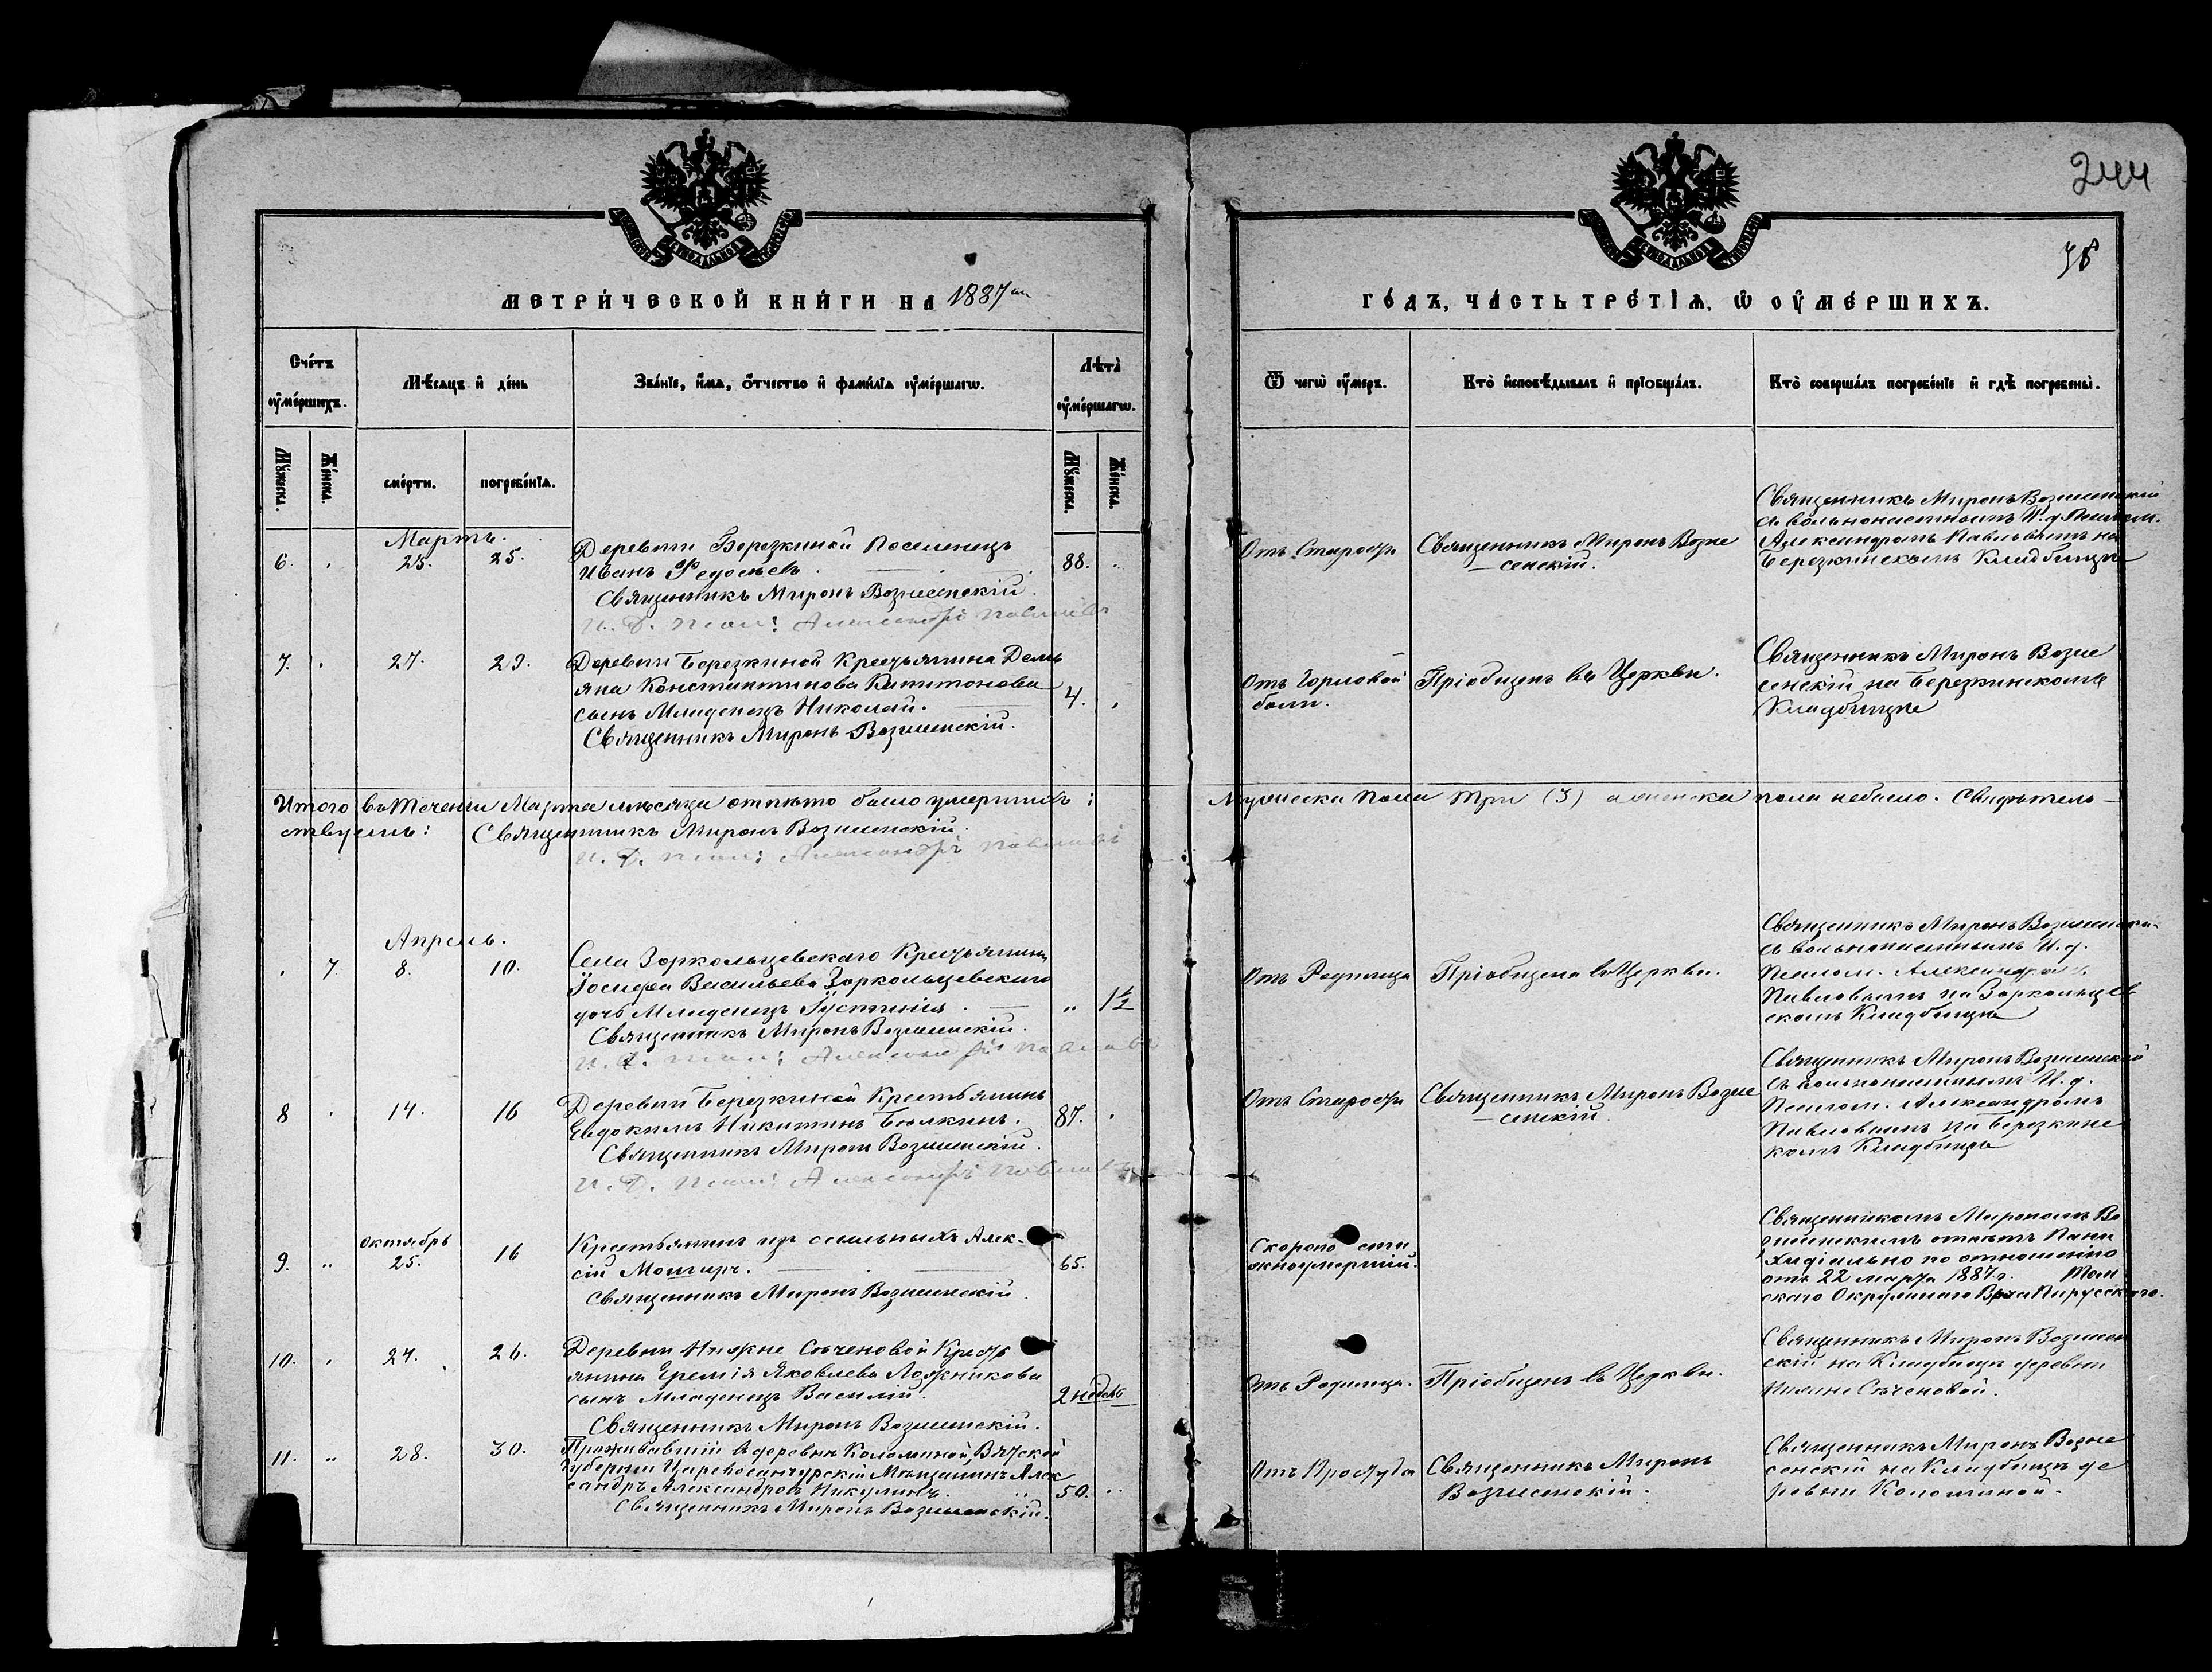 244
38
МЕТРИЧЕСКОЙ КНИГИ НА 1887
ГОДЪ, ЧАСТЬ ТРЕТІЯ, Ѡ ОУМЕРШИХЪ.
Счетъ оумершихъ.
Мѣсяцъ и день
Званіе, имя, отчество и фамилія оумершагѡ.
Лѣта оумершагѡ.
Ѿ чегѡ оумеръ.
Кто исповѣдывалъ и пріобщалъ.
Кто совершалъ погребеніе и гдѣ погребены.
Мужеска.
Женска.
смерти.
погребенія.
Мужеска.
Женска.
Мартъ.
6.
25.
25.
Деревни Березкиной Поселенецъ
Иванъ Федосѣевъ.
88.
Священникъ Миронъ Вознесенскій.
И. Д. Псал: Александръ Павловъ
Отъ Старости
Священникъ Миронъ Возне
сенскій.
Священникъ Миронъ Вознесенскій
съ вольнонаемнымъ И. д. Псалом.
Александромъ Павловымъ на
Березкинскомъ Кладбищѣ
7.
27.
29.
Деревни Березкиной Крестьянина Демь
яна Константинова Капитонова
сынъ Младенецъ Николай.
4.
Священникъ Миронъ Вознесенскій.
Отъ Горловой
боли.
Пріобщенъ въ Церкви.
Священникъ Миронъ Возне
сенскій на Березкинскомъ
Кладбищѣ
Итого въ теченіи Марта мѣсяца отпѣто было умершихъ: Мужеска пола три (3) а женска пола небыло. Свидѣтель-
ствуемъ: Священникъ Миронъ Вознесенскій.
И. Д. Псал: Александръ Павловъ
Апрель.
7.
8.
10.
Села Зоркольцевскаго Крестьянина
Іосифа Васильева Зоркольцевскаго
дочь Младенецъ Іустинія.
1½
Священникъ Миронъ Вознесенскій.
И. Д. Псал: Александръ Павловъ
Отъ Родимца
Пріобщена въ Церкви.
Священникъ Миронъ Вознесенскій
съ вольнонаемнымъ И. д.
Псалом. Александромъ
Павловымъ на Зоркольцев
скомъ Кладбищѣ
8
14.
16
Деревни Березкиной Крестьянинъ
Евдокимъ Никитинъ Бюлкинъ.
87.
Священникъ Миронъ Вознесенскій.
И. Д. Псал: Александръ Павловъ
Отъ Старости
Священникъ Миронъ Возне
сенскій.
Священникъ Миронъ Вознесенскій
съ вольнонаемнымъ И. д.
Псалом. Александромъ
Павловымъ на Березкинс
комъ Кладбищѣ
Октябрь
9.
25.
16
Крестьянинъ изъ ссыльныхъ Алек-
сій
65.
Священникъ Миронъ Вознесенскій.
Скоропостижноумершій.
Священникомъ Мирономъ Во
знесенскимъ отпѣтъ Пани
хидіально по отношенію
отъ 22 марта 1887 г. Том
скаго Окружнаго Врача
10.
24.
26.
Деревни Нижне Сѣченовой Кресть
янина Еремія Яковлева Ложникова
сынъ Младенецъ Василій.
2 недѣл
Священникъ Миронъ Вознесенскій.
Отъ Родимца.
Пріобщенъ въ Церкви.
Священникъ Миронъ Вознесен
скій на Кладбищѣ деревни
Нижне Сѣченовой.
11.
28.
30.
Проживавшій въ деревнѣ Коломиной, Вятской
Губерніи Царевосанчурскій Мѣщанинъ Алек
сандръ Александровъ Никулинъ.
50.
Священникъ Миронъ Вознесенскій.
Отъ Простуды
Священникъ Миронъ
Вознесенскій.
Священникъ Миронъ Возне
сенскій на Кладбищѣ де
ревни Коломиной.